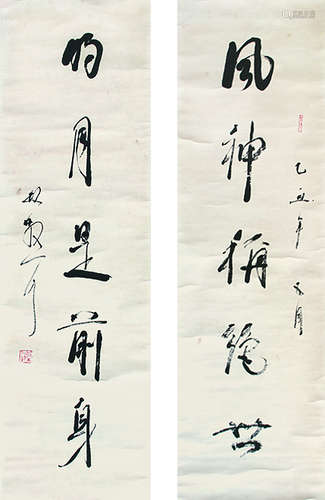 風神稱絕世
乙丑年 月
明月是前身
林散耳